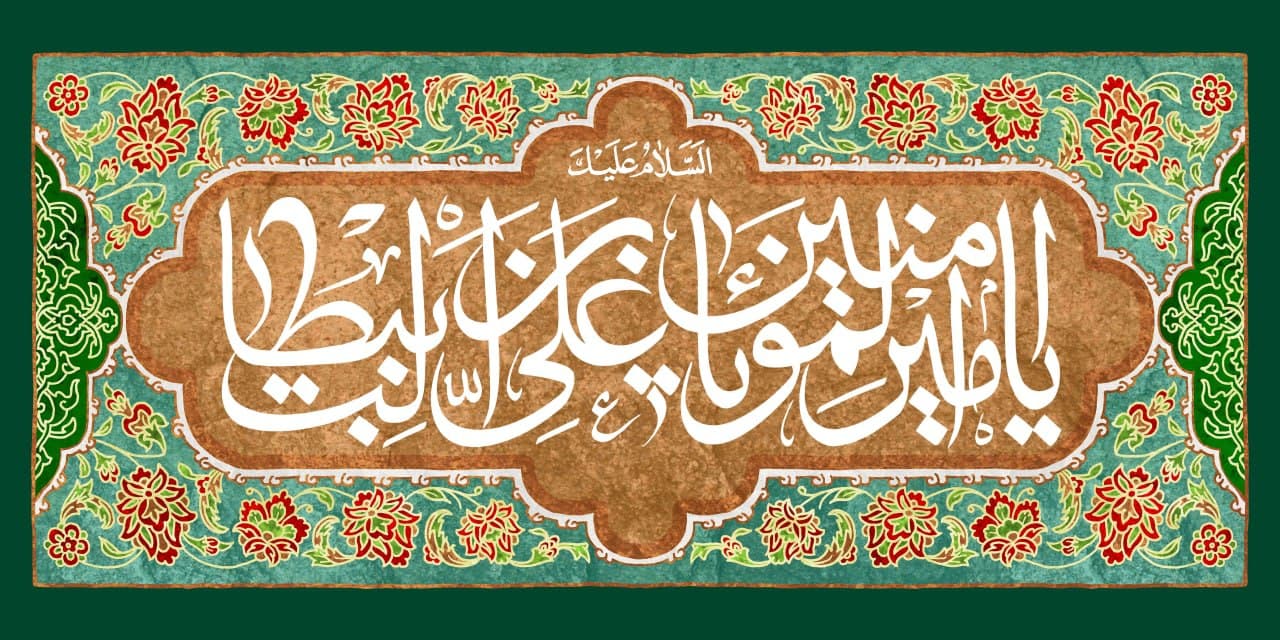 اَلسَّلامُ عَلَیْكَ
یا امیر المؤمنین یا علی بن ابیطالب